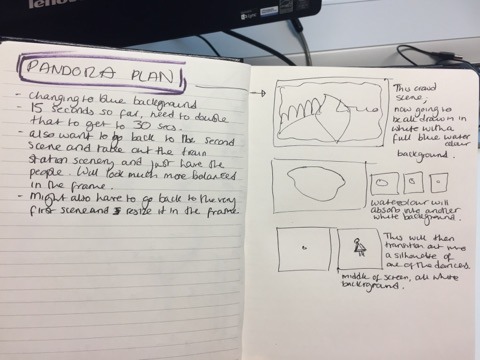 lenovo
PANDORA PLAN
- Changing to blue background
- 15 seconds so far, need to double
that to get to 30 secs.
- also want to go back to the second
scene and take out the train
station scenery and just have the
people. Will look much more balanced
in the frame.
- Might also have to go back to the very
first scene and resize it in the frame
This crowd
scene,
now going to
be all drawn in
white with a
full blue water
colour
background.
watercolour will
absorb into another
white background.
This will then
transition out into
a silhouette of
one of the dancers.
middle of screen, all white
background.